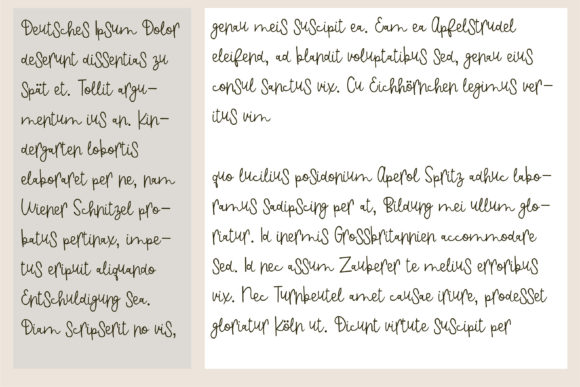 Deutsches Ipsum Dolor
deserunt dissentias zu
Spät et. Tollit argu-
mentum ius an. Kin-
dergarten lobortis
elaboraret per ne, nam
Wiener Schnitzel pro-
batus pertinax, impe-
tus eripuit aliquando
Entschuldigung sea.
Diam scripserit no vis,
genau meis suscipit ea. Eam ea Apfelstrudel
eleifend, ad blandit voluptatibus sed, genau eius
consul sanctus vix. Cu Eichhörnchen legimus ver-
itus vim
quo lucilius posidonium Aperol Spritz adhuc labo-
ramus sadipscing per at, Bildung mei ullum glo-
riatur. Id inermis Grossbritannien accommodare
sed. Id nec assum Zauberer te melius erroribus
vix. Nec Turnbeutel amet causae iriure, prodesset
gloriatur Köln ut. Dicunt virtute suscipit per